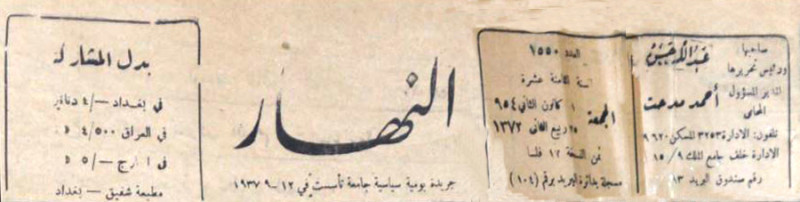 صاحبها
ورئيس تحريرها
المدير المسؤول
المحامي
أحمد مدحت
تلفون: الادارة ٣٢٥٣ المسكن ٩٦٢٠
الادارة خلف جامع الملك ١٥/٩
رقم صندوق البريد ١٣
العدد ١٥٥٠
السنة الثامنة عشرة
الجمعة
١ كانون الثاني ٩٥٤
٢٥ ربيع الثاني ١٣٧٣
ثمن النسخة ١٢ فلسا
مسجلة بدائرة البريد برقم (١٠٤)
النهار
جريدة يومية سياسية جامعة تأسست في ١٢-٩-١٩٣٧
بدل المشاركة
في بغداد —/٤ دنانير
في العراق ٤/٥٠٠ د
في الخارج —/٥ د
مطبعة شفيق — بغداد